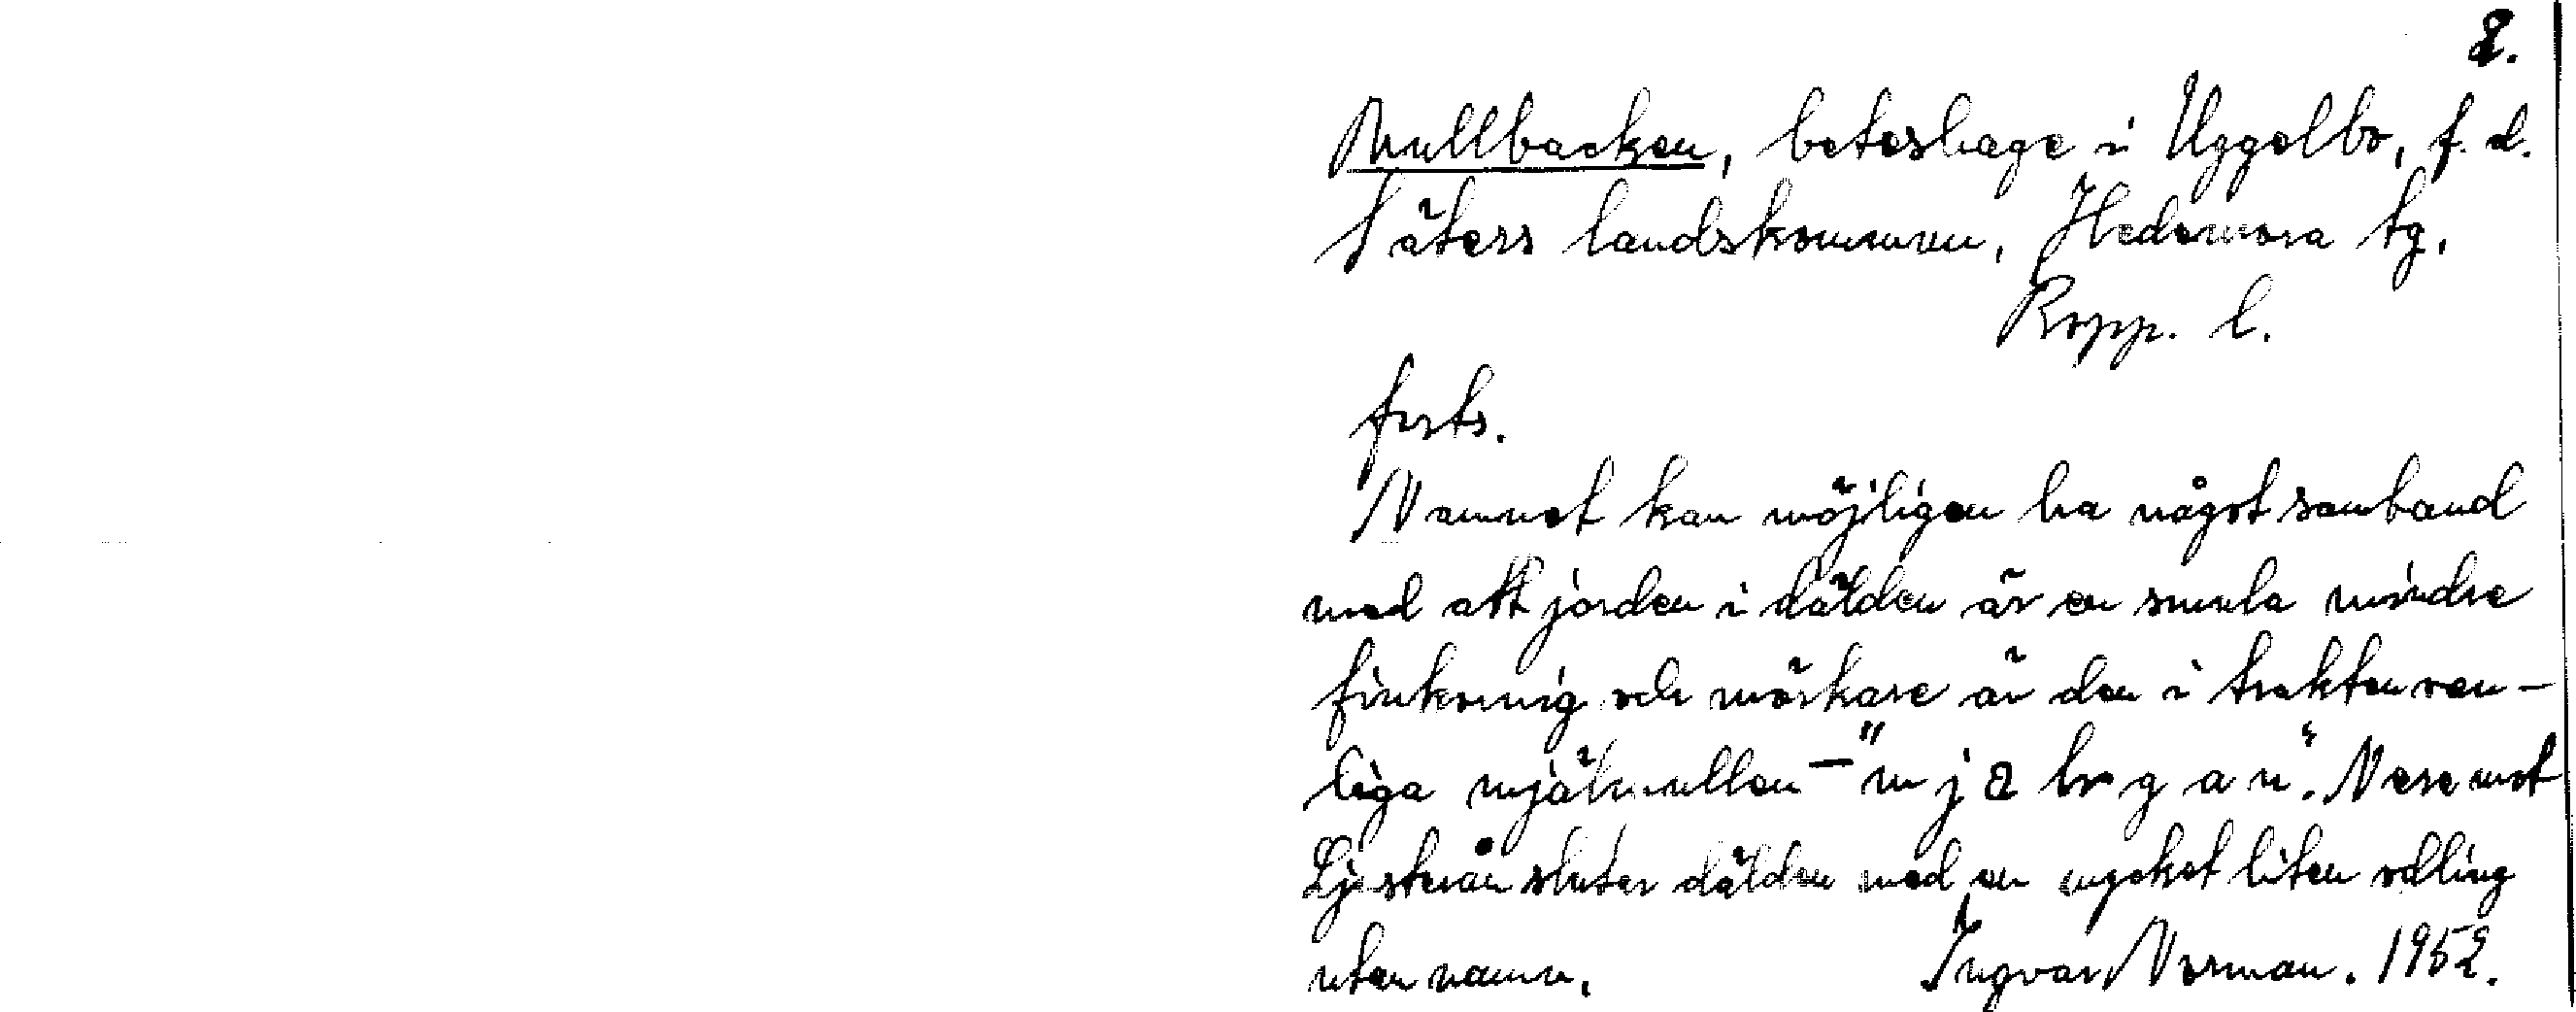 2.
Mullbacken, beteshage i Uggelbo, f. d.
Säters landskommun, Hedemora tg,
Kopp. l.
forts.
Namnet kan möjligen ha något samband
med att jorden i dälden är en smula mindre
finkornig och mörkare än den i trakten van-
liga mjälmullen – "m j ä l g a n". Närmast
Ljusterån slutar dälden med en mycket liten odling
utan namn. Ingvar Norman. 1952.